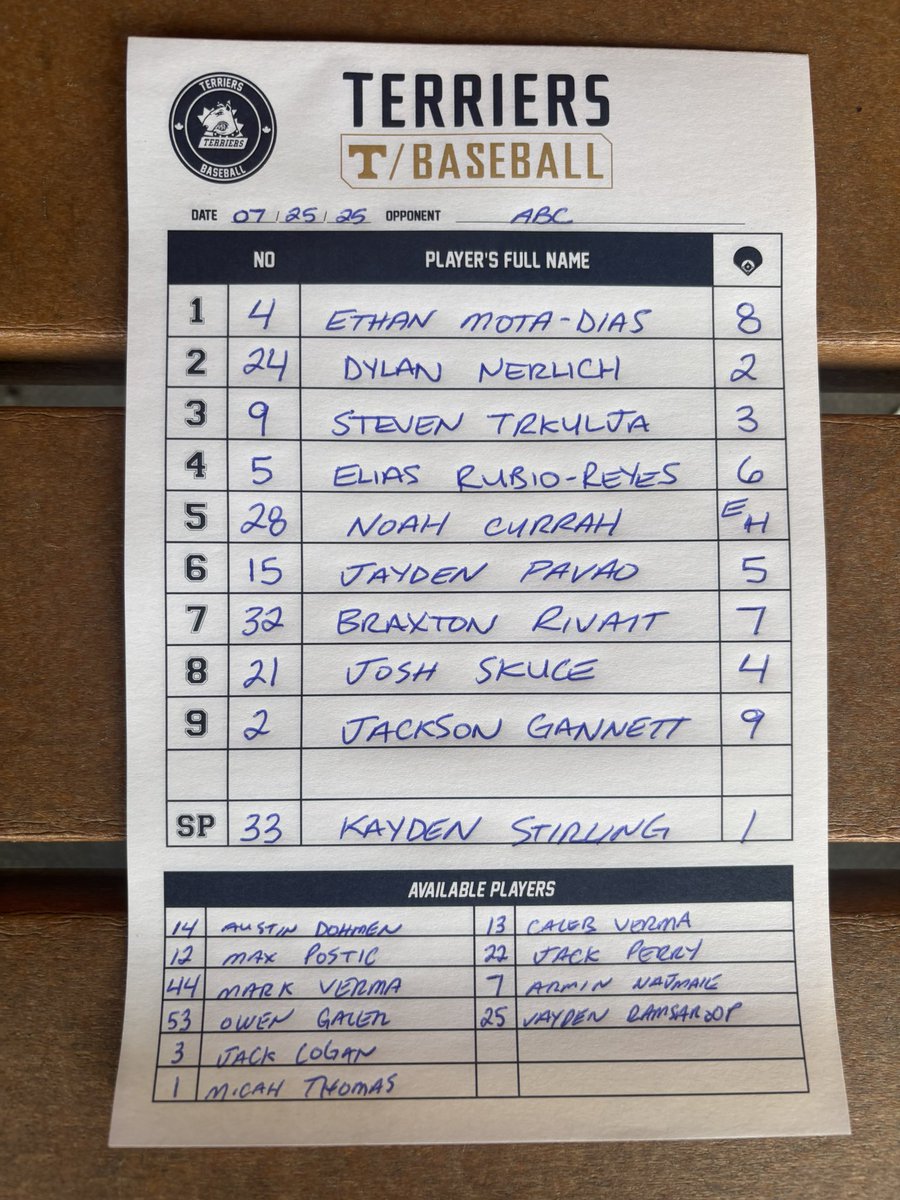 TERRIERS
TERRIERS
BASEBALL
TERRIERS
T/BASEBALL
DATE 07/25/25 OPPONENT ABC
NO PLAYER'S FULL NAME
1 4 ETHAN MOTA-DIAS 8
2 24 DYLAN NERLICH 2
3 9 STEVEN TRKULJA 3
4 5 ELIAS RUBIO-REYES 6
5 28 NOAH CURRAH EH
6 15 JAYDEN PAVAO 5
7 32 BRAXTON RIVAIT 7
8 21 JOSH SKUCE 4
9 2 JACKSON GANNETT 9
SP 33 KAYDEN STIRLING 1
AVAILABLE PLAYERS
14 AUSTIN DOHMEN 13 CALEB VERMA
12 MAX POSTIC 22 JACK PERRY
44 MARK VERMA 7 ARMIN
53 OWEN GALER 25 JAYDEN RAMSAROOP
3 JACK LOGAN
1 MICAH THOMAS